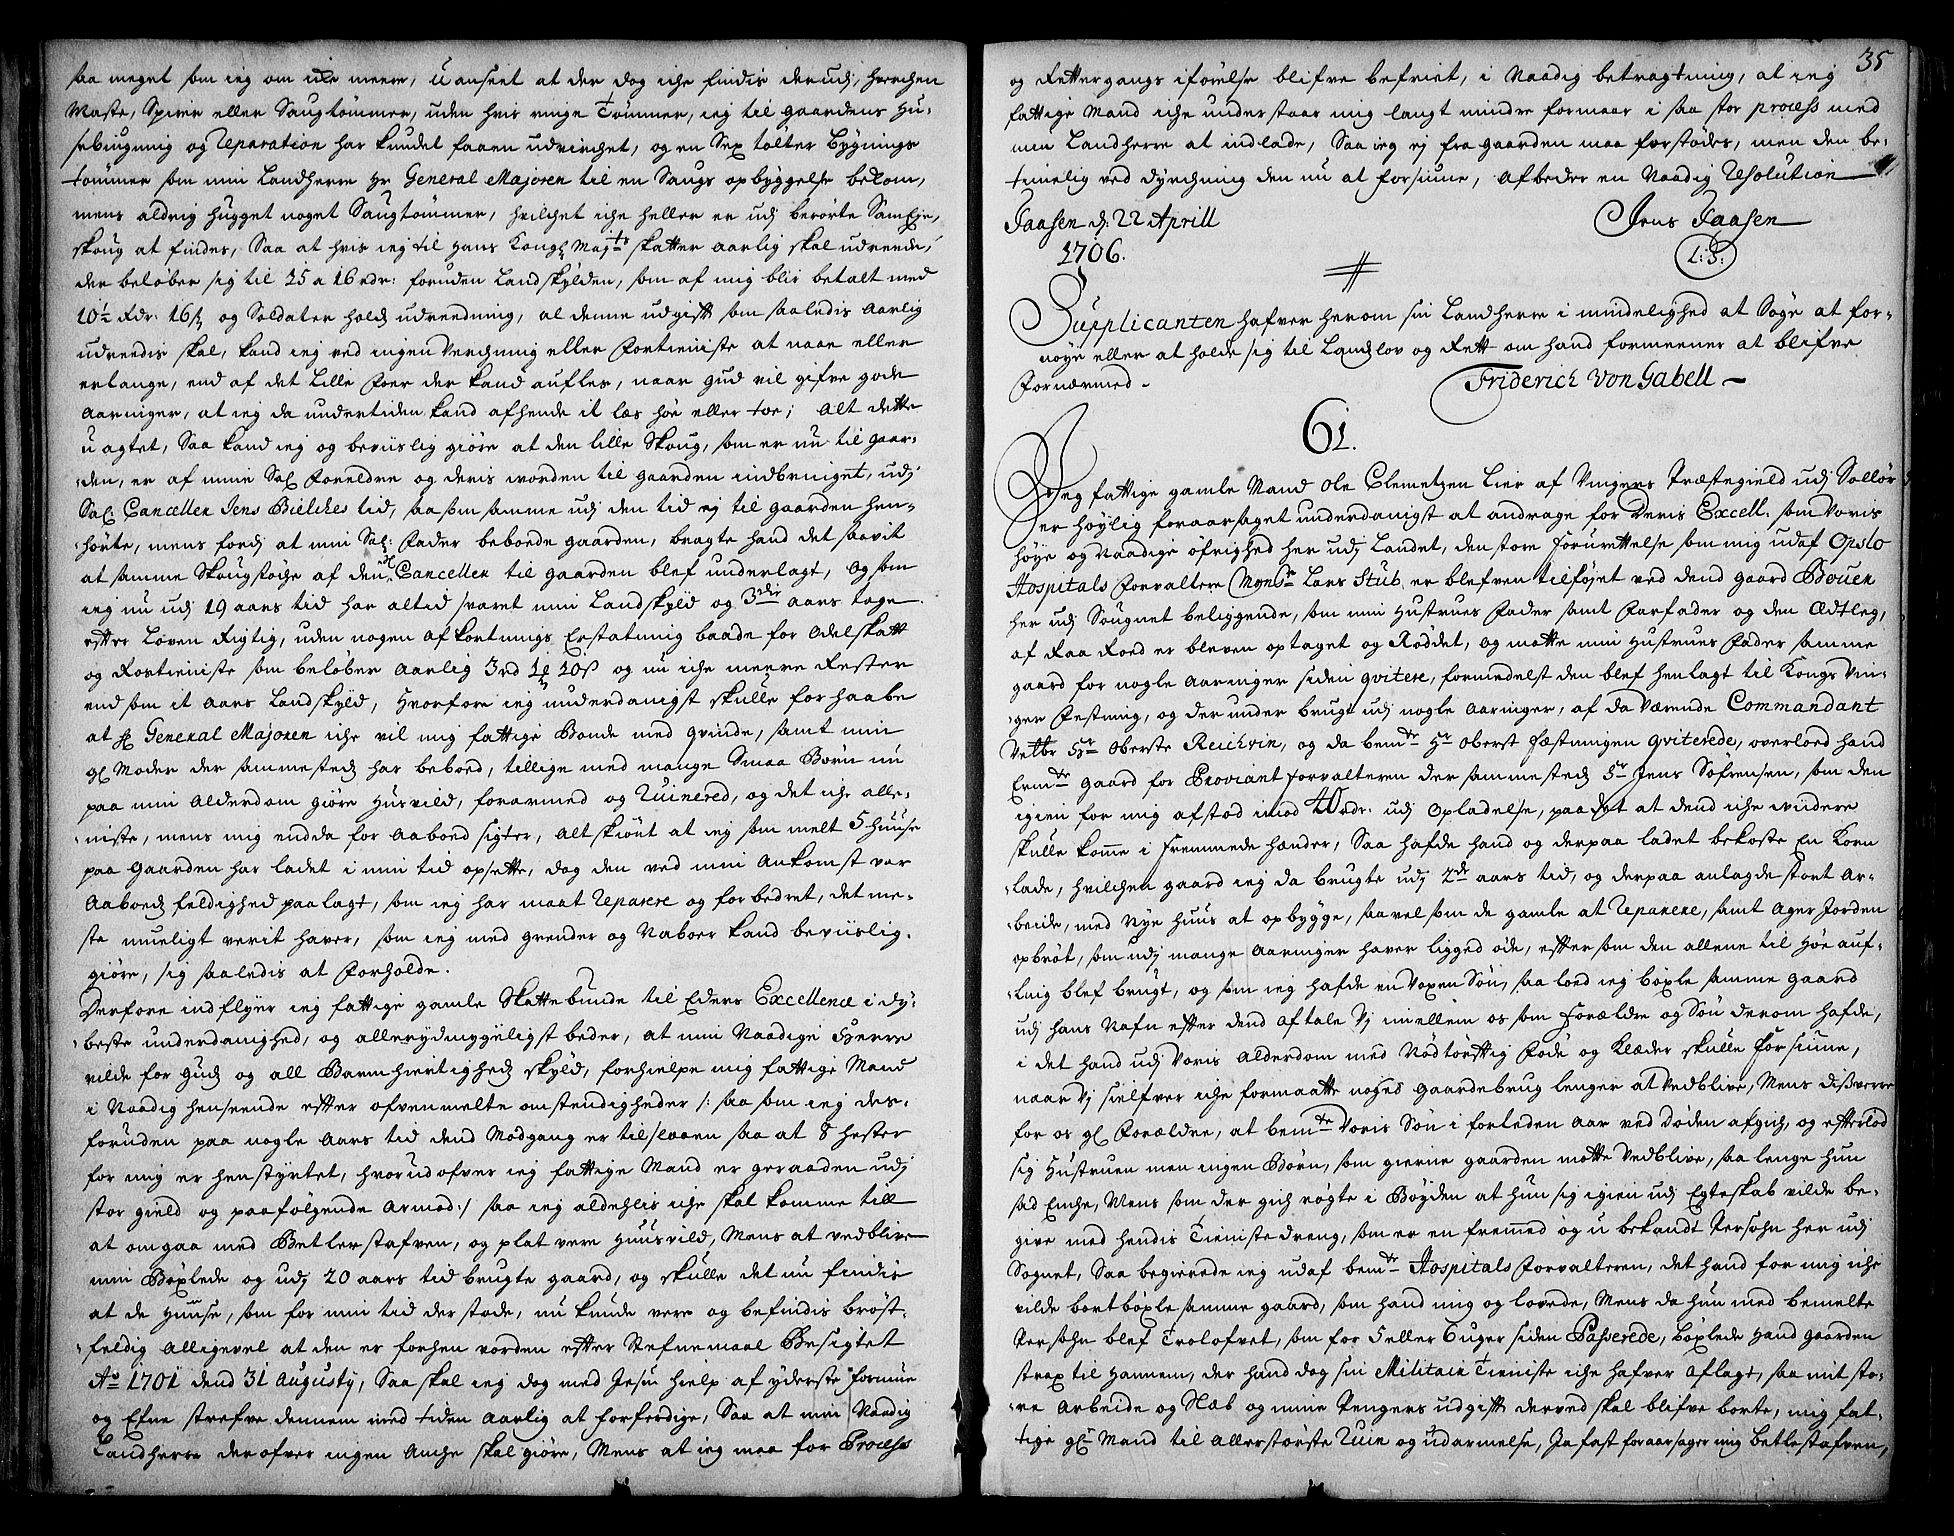 saa meget som ieg om ike meere, u anseet at der dog iche findis derudj, hverchen
Maste, Spirer eller Saugtømmer, uden hvis ringe Tømmer, ieg til gaardens Hu-
sebugning og Reparation har kundet faaen udvirchet, og en Sex tølter Bygnings
tømmer som min Landherre Hr General Majoren til en Saugs opbyggelse bekom,
mens aldrig hugget noget Saugtømmer, hvilchet iche heller er udj berørte SamEje,
skoug at findes, Saa at hvis ieg til Hans Kongl Mayts skatter aarlig skal udreede,
der beløber sig til 15 a 16 rdr: foruden Landskylden, som af mig blir betalt med
10½ Rdr. 16 s og Soldater hold udreedning, al denne udgifft som saaledis aarlig
udreedis skal, kand ieg ved ingen Verchning eller Fortieniste at naae eller
erlange, end af det Lille Foer der kand aufles, naar Gud vil gifve gode
Aaringer, at ieg da undertiden kand afhende it læs høe eller toe; Alt dette
u agtet, Saa kand ieg og beviislig giøre at den lille Skoug, som er nu til gaar-
den, er af mine Sal Foreldre og deris worden til gaarden indbruiget, udj
Sal: Canceller Jens Bielckes tid, saa som samme udj den tid ej til gaarden hen-
hørte, mens fordj at min Sal: Fader beboede gaarden, bragte hand det saavit
at samme Skougstøche af den Canceller til gaarden blef underlagt, og som
ieg nu udj 19 aars tid har altid svaret min Landskyld og 3die aars tage
efter Loven Rigtig, uden nogen afkortnings Erstatning baade for Odelskatt
og Rostieniste som beløber aarlig 3 rd 1 10 s og nu iche meere Rester
end som it aars Landskyld, Hvorfore ieg underdanigst skulle forhaabe
at Hr General Majoren iche vil mig fattige Bonde med qvinde, samt min
gl Moder der sammesteds har beboed, tillige med mange Smaa Børn nu
paa min Alderdom giøre Husvild, forarmed og Ruinered, og det iche alle-
niste, mens mig endda for Aaboed sigter, alt skiønt at ieg som melt 5 huuse
paa Gaarden har ladet i min tid opsette, dog den ved min Ankomst var
Aaboeds feldighed paalagt, som ieg har maat Reparere og forbedret, det me-
ste mueligt verit haver, som ieg med grender og Naboer kand beviislig-
giøre, sig saaledis at Forholde.
Derfore indflyer ieg fattige gamle Skattebunde til Eders Excellence i dy-
beste underdanighed, og allerydmygeligst beder, at min Naadige Herre
vilde for Guds og all Barmhiertigheds skyld, forhielpe mig fattige Mand
i Naadig henseende efter ofvenmelte omstendigheder /: saa som ieg des-
foruden paa nogle aars tid dend Modgang er tilslaaen saa at 8 hester
for mig er henstyrtet, hvorudofver ieg fattige Mand er geraaden udj
stor gield og paafølgende armod :/ saa ieg aldehlis iche skal komme till
at omgaa med Betlerstafven, og plat vere Huusvild, Mens at vedblive
min Bøxlede og udj 20 aars tid brugte gaard, og skulle det nu findis
at de Huuse, som for min tid der stode, nu kunde vere og befindis brøst-
feldig alligevel at den er forhen vorden efter Stefnemaal Besigtet
Ao 1701 dend 31 Augusty, Saa skal ieg dog med Jesu hielp af yderste formue
og Efne strefve dennem med tiden aarlig at forferdige, Saa at min Naadig
Landherre derofver ingen Anche skal giøre, Mens at ieg maa for Process
35
og Rettergangs iførelse blifve befriet, i Naadig betragtning, at ieg
fattige Mand iche understaar mig langt mindre formaar i saa stor process med
min Landherre at indlade, Saa ieg ej fra gaarden maa forstødes, men den be-
timelig ved dyrchning den nu at forsiune, afbeder en Naadig Resolution
Faasen d: 22 Aprill
1706.
Jens Faasen
L: S:
Supplicanten hafver herom sin Landherre i mindelighed at Søge at for-
nøye eller at holde sig til Landslov og Rett om hand formeener at blifve
Fornærmed -
Friderich Von Gabell -
61.
Jeg fattige gamle Mand Ole Clemetzen Lier af Vingers Præstegield udj Soelløer
er høylig foraarsaget underdanigst at andrage for Deris Excell: som Voris
høye og Naadige øfrighed her udj Landet, den store Foruretttelse som mig udaf Opslo
Hospitals Forvaltere Monsr Lars Stub er blefven tilføjet ved dend gaard Bouer
her udj Sougnet beliggende, som min Hustrues Fader samt Farfader og den Ædtleg,
af Raa Roed er bleven optaget og Røddet, og motte min Hustrues Fader samme
gaard for nogle Aaringer siden qvitere, formedelst den blef henlagt til Kongs Vin-
ger Festning, og der under brugt udj nogle Aaringer, af da Værende Commandant
Velbr Hr Oberste Reichvin, og da bemte Hr Oberst Fæstningen qviterede, overloed hand
Ermte gaard for Proviant forvalteren der sammesteds Sr Jens Sofrensen, som den
igien for mig afstod imod 40 rdr. udj Opladelse, paa det at dend iche widere
skulle komme i fremmede hænder, Saa hafde hand og derpaa ladet bekoste En Korn
lade, hvilchen gaard ieg da brugte udj 2de aars tid, og derpaa anlagde stort Ar-
beide, med Nye huus at opbygge, saa vel som de gamle at Reparere, samt Ager Jorden
opbrøt, som udj mange Aaringer haver ligged øde, eftersom den allene til Høe auf-
ling blef brugt, og som ieg hafde en Voxen Søn, saa loed ieg bøxle samme gaard
udj hans Nafn efter dend aftale Vj imellem os som Forældre og Søn derom hafde,
i det hand udj Voris Alderdom med Nødtørfftig Føde og Klæder skulle forsiune,
naar Vj sielfver iche formaatte noged gaardebrug lenger at Vedblive, Mens disværre
for os gl Forældre, at bemte Voris Søn i forleden Aar ved Døden afgich, og efterlod
sig Hustruen men ingen Børn, som gierne gaarden motte Vedblive, saa lenge hun
sad Enche, Mens som der gich røgte i Bøyden at hun sig igien udj Egteskab vilde be-
give med hendis Tieniste dreng, som er en fremed og u bekandt Persohn her udj
Sognet, Saa begierede ieg udaf bemte Hospitals Forvalteren, det hand for mig iche
vilde bortbøxle samme gaard, som hand mig og lovede, Mens da hun med bemelte
Persohn blef Trolofvet, som for 5 eller 6 uger siden Passerede, bøxlede Hand gaarden
strax til Hannem, der hand dog sin Militair Tieniste iche hafver aflagt, saa mit sto-
re Arbeide og Slæb og mine Penges udgifft derved skal blifve borte, mig fat-
tige gl Mand til allerstørste Ruin og udarmelse, Ja fast foraarsager mig Betlestafven,